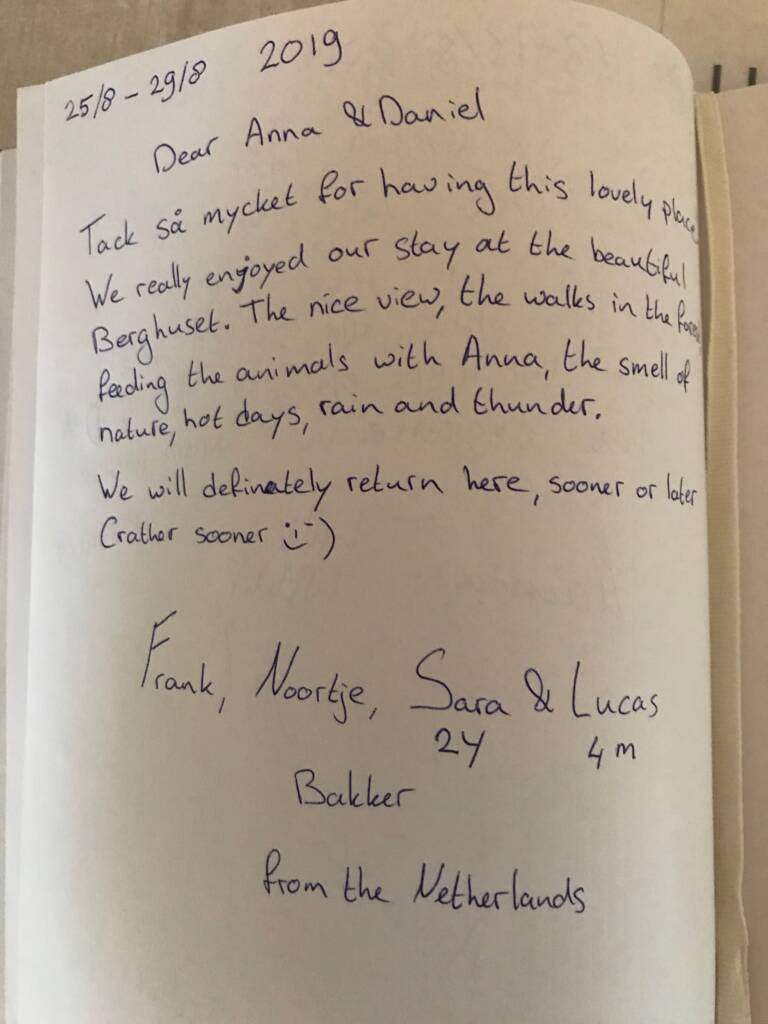 25/8 - 29/8 2019
Dear Anna & Daniel
Tack så mycket for having this lovely place
We really enjoyed our stay at the beautiful
Berghuset. The nice view, the walks in the forest
feeding the animals with Anna, the smell of
nature, hot days, rain and thunder.
We will definately return here, sooner or later
(rather sooner :-))
Frank, Noortje, Sara & Lucas
2y 4m
Bakker
from the Netherlands